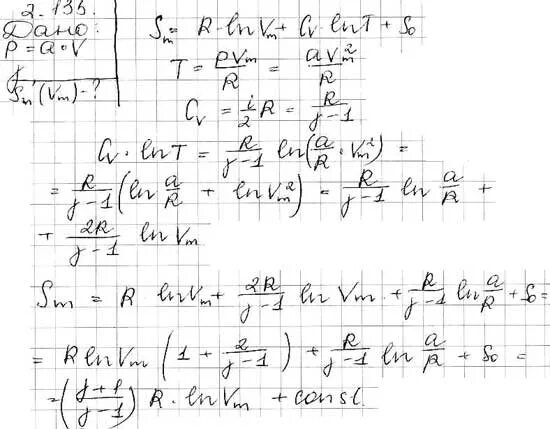 2.135.
Дано:
P = a·V
γ
Sm(Vm) - ?
Sm = R·lnVm + Cv·lnT + S0
T = PVm/R = aVm²/R
Cv = i/2 R = R/(γ-1)
Cv·lnT = R/(γ-1) ln(a/R · Vm²) =
= R/(γ-1) (ln a/R + lnVm²) = R/(γ-1) ln a/R +
+ 2R/(γ-1) lnVm
Sm = R lnVm + 2R/(γ-1) lnVm + R/(γ-1) ln a/R + S0 =
= R lnVm (1 + 2/(γ-1)) + R/(γ-1) ln a/R + S0 =
= ((γ+1)/(γ-1)) R·lnVm + const.